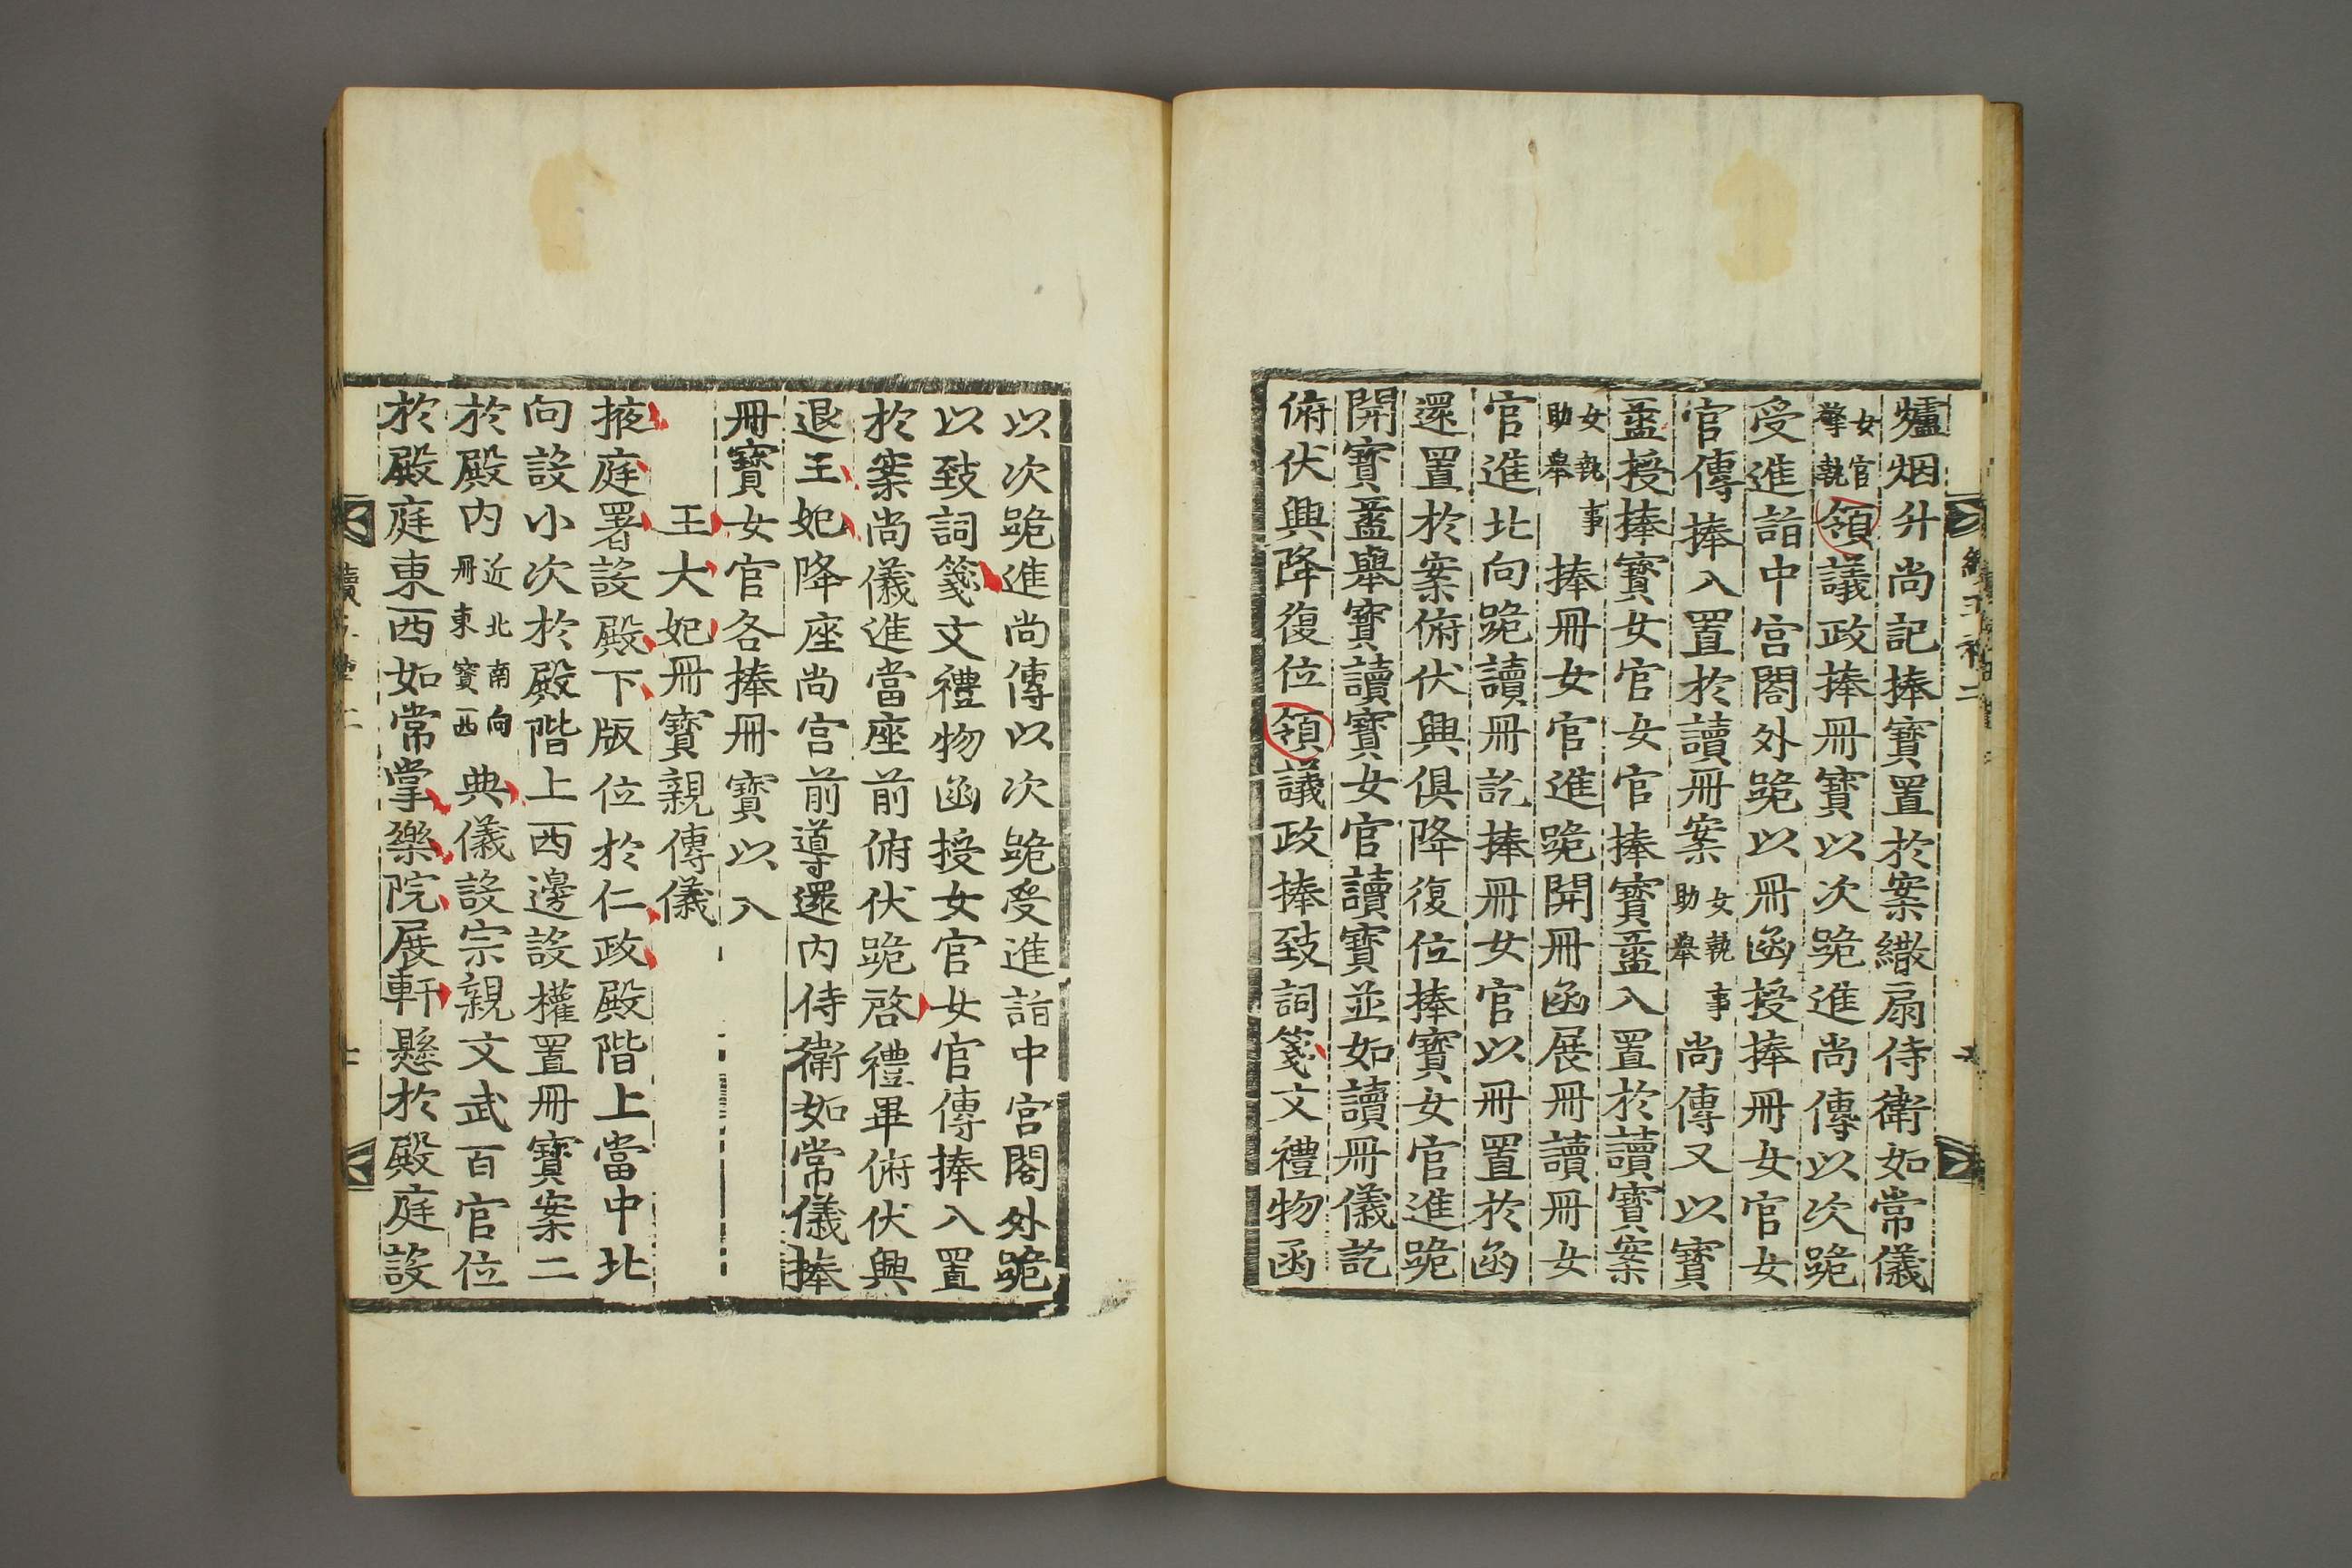 爐烟升尚記捧寳置於案繖扇侍衛如常儀
女官擎執領議政捧冊寳以次跪進尚傳以次跪
受進詣中宮閤外跪以冊函授捧冊女官女
官傳捧入置於讀冊案女執事助舉尚傳又以寳
盝授捧寳女官女官捧寳盝入置於讀寳案
女執事助舉捧冊女官進跪開冊函展冊讀冊女
官進北向跪讀冊訖捧冊女官以冊置於函
還置於案俯伏興俱降復位捧寳女官進跪
開寳盝舉寳讀寳女官讀寳並如讀冊儀訖
俯伏興降復位領議政捧致詞箋文禮物函
以次跪進尚傳以次跪受進詣中宮閤外跪
以致詞箋文禮物函授女官女官傳捧入置
於案尚儀進當座前俯伏跪啓禮畢俯伏興
退王妃降座尚宮前導還內侍衛如常儀捧
冊寳女官各捧冊寳以入
王大妃冊寳親傳儀
掖庭署設殿下版位於仁政殿階上當中北
向設小次於殿階上西邊設權置冊寳案二
於殿內近北南向冊東寳西典儀設宗親文武百官位
於殿庭東西如常掌樂院展軒懸於殿庭設